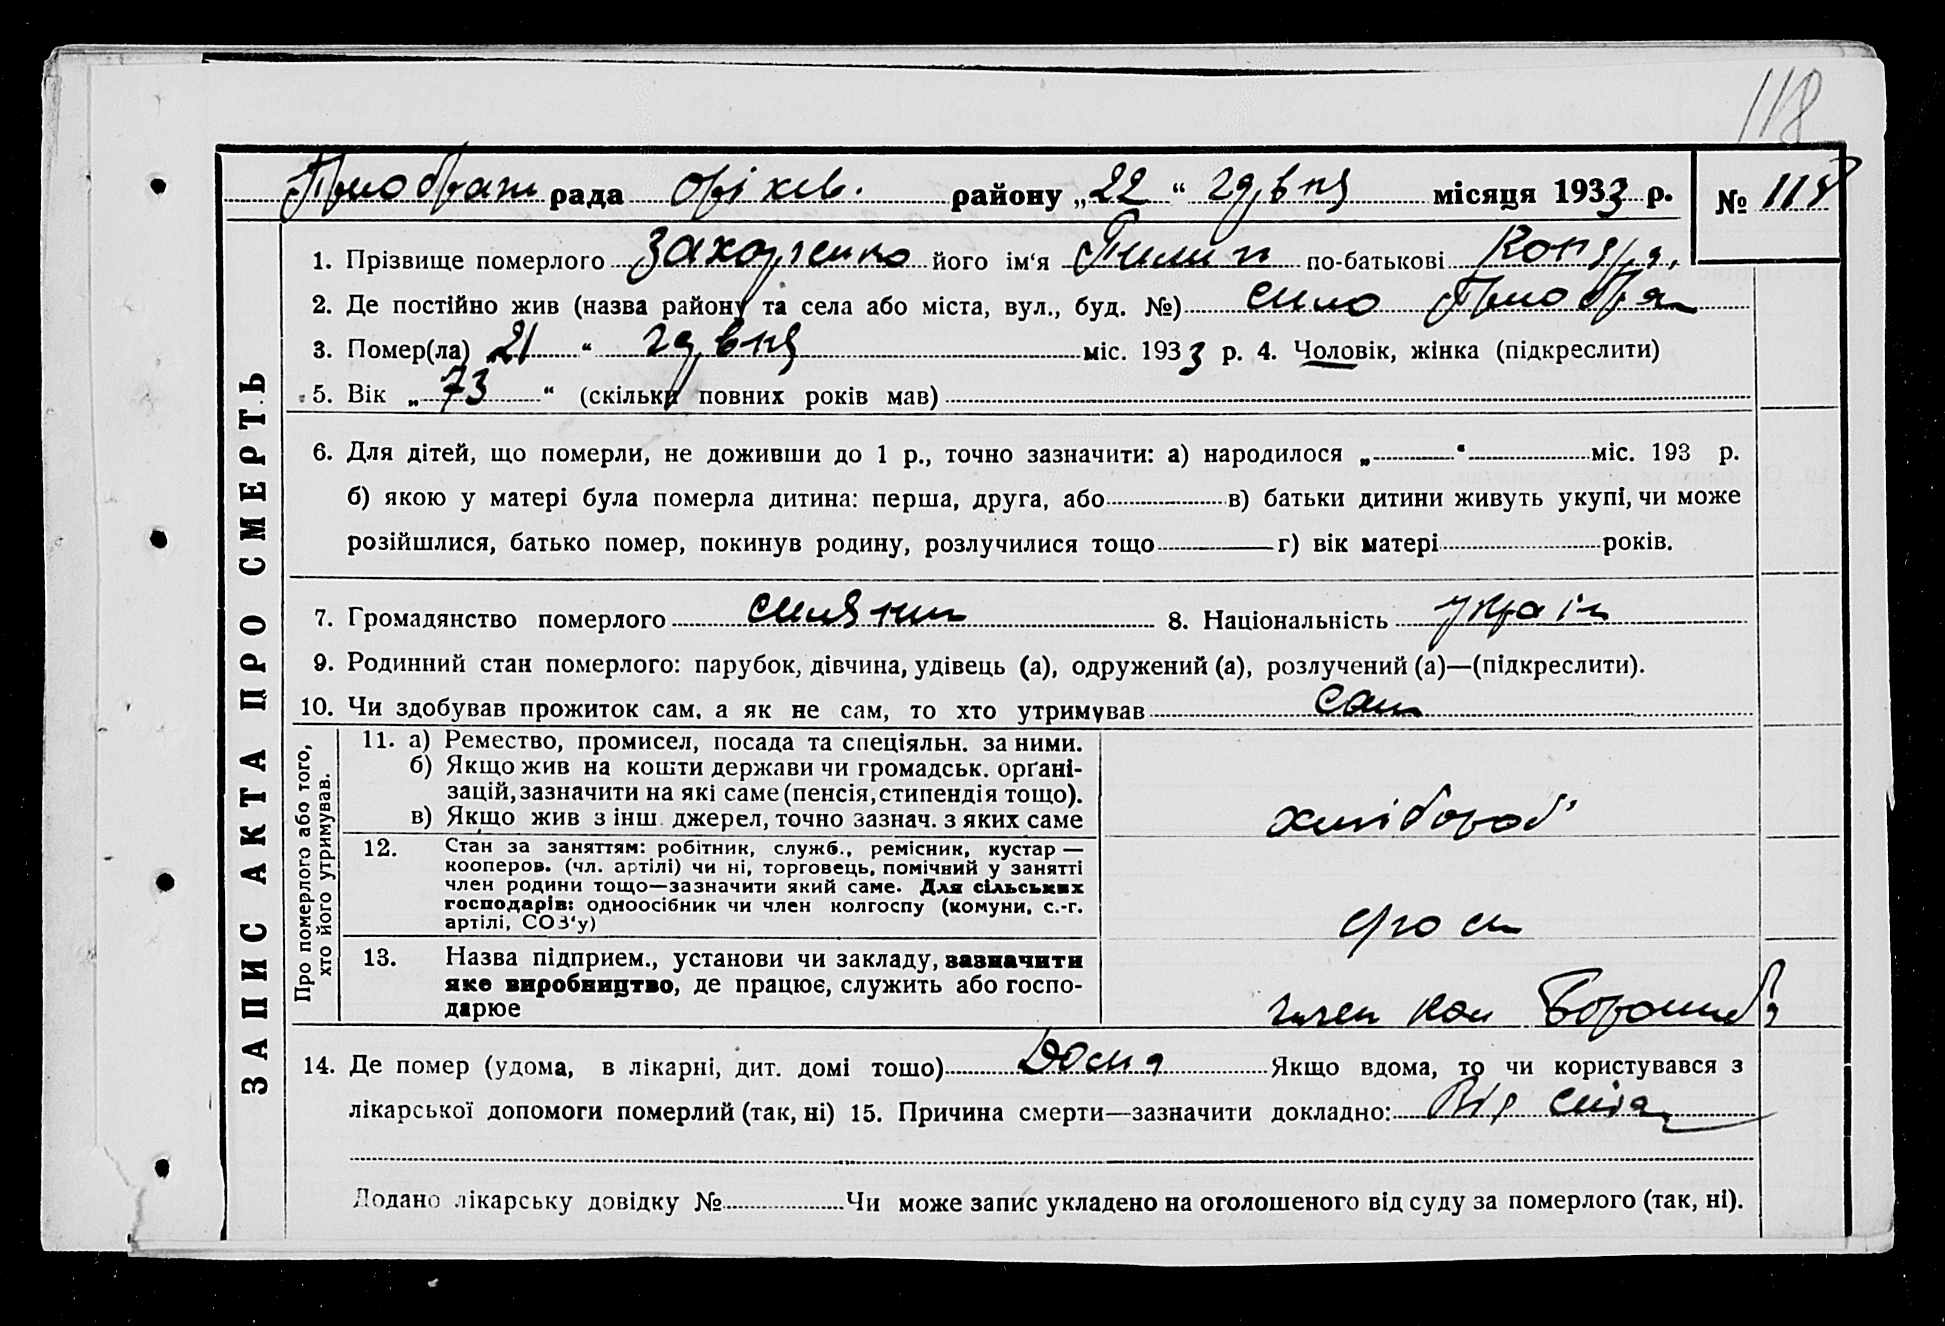 118
Преображ рада оріхів. району „22“ грудня місяця 1933 р. № 118
ЗАПИС АКТА ПРО СМЕРТЬ
1. Прізвище померлого Захарченко його ім‘я Пилип по-батькові
2. Де постійно жив (назва району та села або міста, вул., буд. №) село Преображ
3. Помер(ла) 21 “ грудня міс. 1933 р. 4. Чоловік, жінка (підкреслити)
5. Вік „ 73 “ (скільки повних років мав)
6. Для дітей, що померли, не доживши до 1 р., точно зазначити: а) народилося „ “ міс. 193 р.
б) якою у матері була померла дитина: перша, друга, або в) батьки дитини живуть укупі, чи може
розійшлися, батько помер, покинув родину, розлучилися тощо г) вік матері років.
7. Громадянство померлого селянин 8. Національність україн
9. Родинний стан померлого: парубок, дівчина, удівець (а), одружений (а), розлучений (а)—(підкреслити).
10. Чи здобував прожиток сам, а як не сам, то хто утримував сам
Про померлого або того,
хто його утримував.
11. а) Ремество, промисел, посада та спеціяльн. за ними.
б) Якщо жив на кошти держави чи громадськ. орґані-
зацій, зазначити на які саме (пенсія, стипендія тощо).
в) Якщо жив з інш. джерел, точно зазнач. з яких саме
хлібороб
12. Стан за заняттям: робітник, служб., ремісник, кустар —
кооперов. (чл. артілі) чи ні, торговець, помічний у занятті
член родини тощо—зазначити який саме. Для сільських
господарів: одноосібник чи член колгоспу (комуни, с.-г.
артілі, СОЗ‘у)
13. Назва підприєм., установи чи закладу, зазначити
яке виробництво, де працює, служить або госпо-
дарює
член кол Ворошилов
14. Де помер (удома, в лікарні, дит. домі тошо) Дома Якщо вдома, то чи користувався з
лікарської допомоги померлий (так, ні) 15. Причина смерти—зазначити докладно: Від
Додано лікарську довідку № Чи може запис укладено на оголошеного від суду за померлого (так, ні).